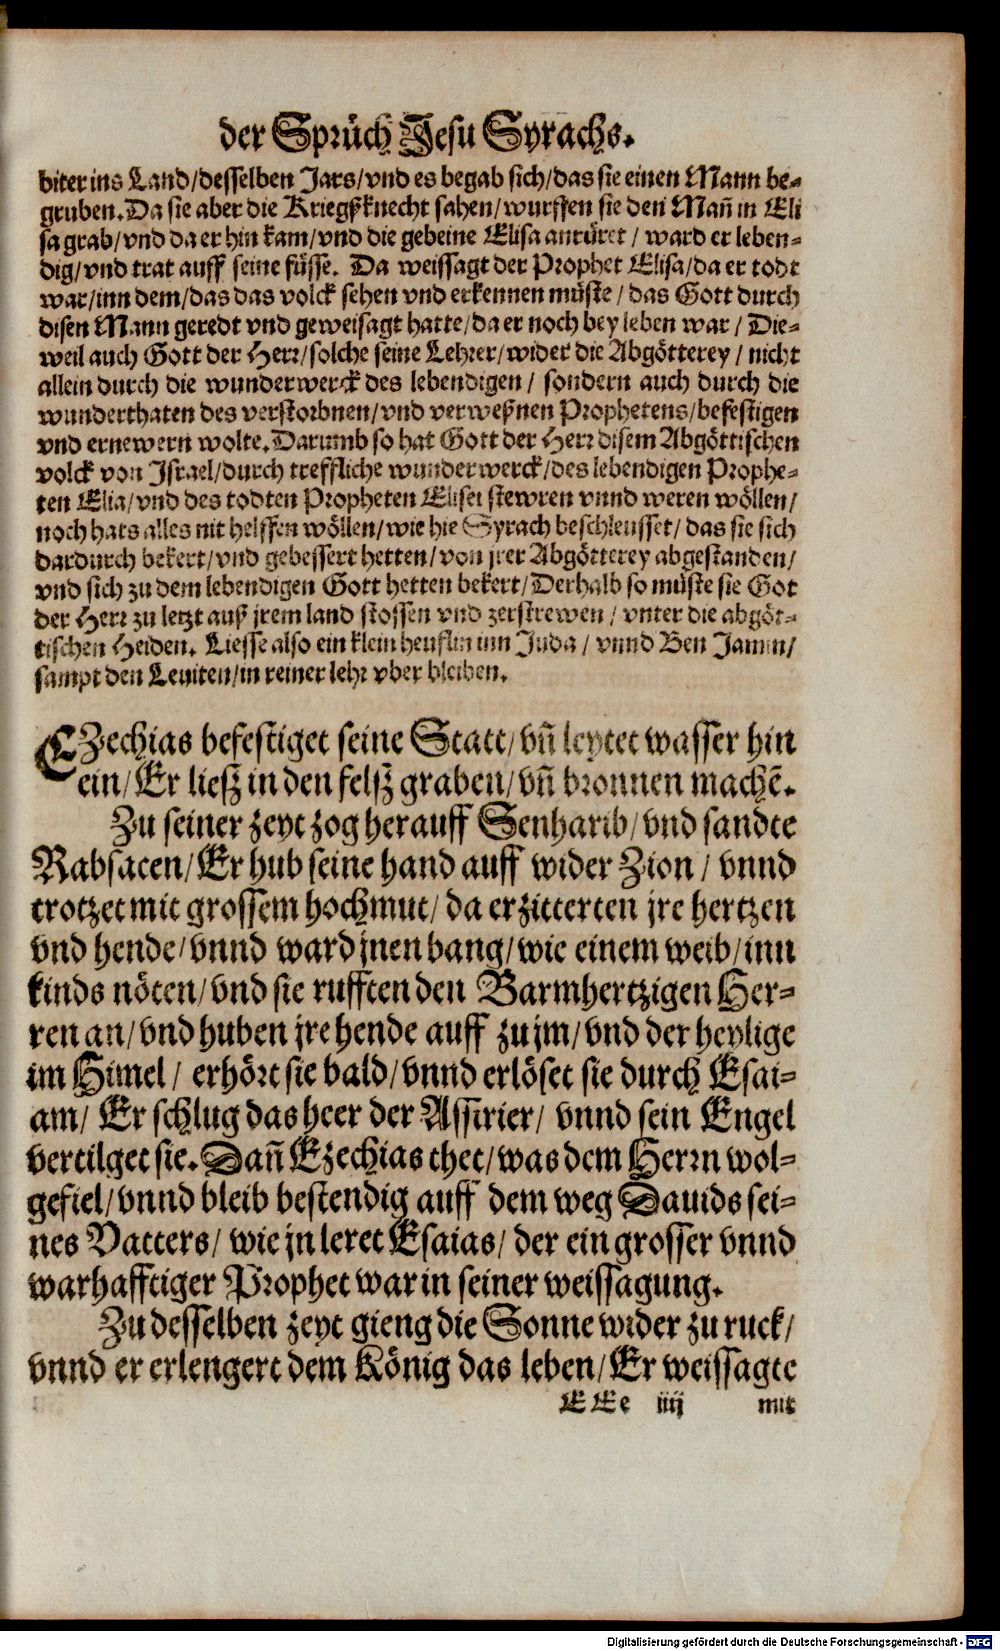 der Sprüch Jesu Syrachs.
biter ins Land/desselben Jars/vnd es begab sich/das sie einen Mann be-
gruben. Da sie aber die Kriegßknecht sahen/wurffen sie den Mañ in Eli
sa grab/vnd da er hin kam/vnd die gebeine Elisa anrüret/ ward er leben-
dig/vnd trat auff seine füsse. Da weissagt der Prophet Elisa/da er todt
war/inn dem/das das volck sehen vnd erkennen müste/ das Gott durch
disen Mann geredt vnd geweisagt hatte/da er noch bey leben war/ Die-
weil auch Gott der Herr/solche seine Lehrer/wider die Abgötterey/ nicht
allein durch die wunderwerck des lebendigen/ sondern auch durch die
wunderthaten des verstorbnen/vnd verweßnen Prophetens/befestigen
vnd ernewern wolte. Darumb so hat Gott der Herr disem Abgöttischen
volck von Israel/durch treffliche wunderwerck/des lebendigen Prophe-
ten Elia/vnd des todten Propheten Elisei stewren vnnd weren wöllen/
noch hats alles nit helffen wöllen/wie hie Syrach beschleusset/das sie sich
dardurch bekert/vnd gebessert hetten/von jrer Abgötterey abgestanden/
vnd sich zu dem lebendigen Gott hetten bekert/Derhalb so müste sie Got
der Herr zu letzt auß jrem land stossen vnd zerstrewen/ vnter die abgöt-
tischen Heiden. Liesse also ein klein heuflin inn Juda/ vnnd Ben Jamin/
sampt den Leuiten/in reiner lehr vber bleiben.
EZechias befestiget seine Statt/vñ leytet wasser hin
ein/Er liesz in den felsz graben/vñ bronnen machẽ.
Zu seiner zeyt zog herauff Senharib/vnd sandte
Rabsacen/Er hub seine hand auff wider Zion/ vnnd
trotzet mit grossem hochmut/da erzitterten jre hertzen
vnd hende/vnnd ward jnen bang/wie einem weib/inn
kinds nöten/vnd sie rufften den Barmhertzigen Her-
ren an/vnd huben jre hende auff zu jm/vnd der heylige
im Himel/ erhört sie bald/vnnd erlöset sie durch Esai-
am/ Er schlug das heer der Assirier/ vnnd sein Engel
vertilget sie. Dañ Ezechias thet/was dem Herrn wol-
gefiel/vnnd bleib bestendig auff dem weg Dauids sei-
nes Vatters/ wie jn leret Esaias/ der ein grosser vnnd
warhafftiger Prophet war in seiner weissagung.
Zu desselben zeyt gieng die Sonne wider zu ruck/
vnnd er erlengert dem König das leben/Er weissagte
EEe iiij mit
Digitalisierung gefördert durch die Deutsche Forschungsgemeinschaft - DFG